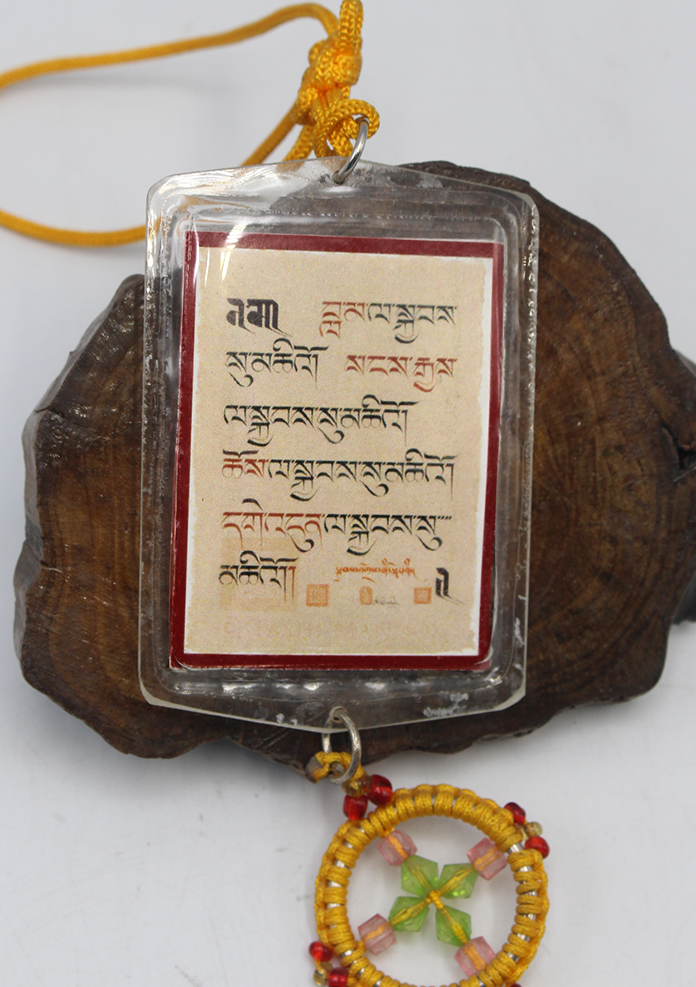 ༄༅། །བླ་མ་ལ་སྐྱབས་
སུ་མཆིའོ། སངས་རྒྱས་
ལ་སྐྱབས་སུ་མཆིའོ།
ཆོས་ལ་སྐྱབས་སུ་མཆིའོ།
དགེ་འདུན་ལ་སྐྱབས་སུ་
མཆིའོ།།